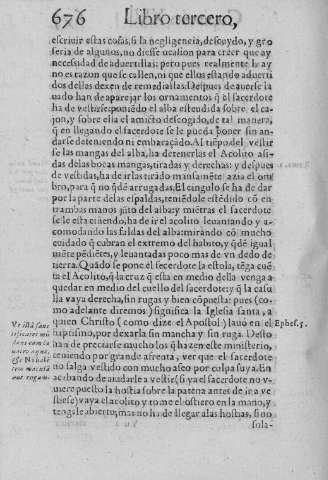 676 Libro tercero,
escriuir estas cosas, si la negligencia, descuydo, y gro
seria de algunos, no diesse ocasion para creer que ay
necessidad de aduertillas: pero pues realmente la ay
no es razon que se callen, ni que ellos estando aduerti
dos dellas dexen de remediallas. Despues de auerse la
uado han de aparejar los ornamentos q̃ el sacerdote
ha de vestirse poniẽdo el alba estendida sobre el ca-
jon, y sobre ella el amicto descogido, de tal manera,
q̃ en llegando el sacerdote se le pueda poner sin an-
darse deteniendo ni embaraçãdo. Al tiẽpo del vestir
se las mangas del alba, ha detenerlas el Acolito asi-
das de las bocas mangas, tiradas y derechas: y despues
de vestidas, ha de irlas tirãdo mansamẽte azia el om
bro, para q̃ no quedẽ arrugadas. El cingulo se ha de dar
por la parte de las espaldas, teniẽdole estẽdido cõ en-
trambas manos jũto del alba: y miẽtras el sacerdote
se le esta ciñendo, ha de ir el acolito leuantando y a-
comodando las faldas del alba: mirando cõ mucho
cuidado q̃ cubran el extremo del habito, y quedẽ igual
mẽte pẽdiẽtes, y leuantadas poco mas de vn dedo de
tierra. Quãdo se pone el sacerdote la estola, tẽga cuẽ
ta el Acolito, q̃ la cruz q̃ esta en medio della venga a
quedar en medio del cuello del sacerdote: y q̃ la casu
lla vaya derecha, sin rugas y bien cõpuesta: pues (co-
mo adelante diremos) significa la Iglesia santa, a
quien Christo (como dize el Apostol) lauò en el
purissimo, por dexarla sin mancha y sin ruga. Desto
han de preciarse mucho los q̃ hazen este ministerio,
teniendo por grande afrenta, ver que el sacerdote
no salga vestido con mucho aseo por culpa suya. En
acabando de aiudarle a vestir (si ya el sacerdote no v
uiere puesto la hostia sobre la patena antes de ir a ve
stirse) vaya el acolito y tome el ostiero en la mano, y
tengale abierto; mas no ha de llegar a las hostias, si no
sola-
Ephes. 5.